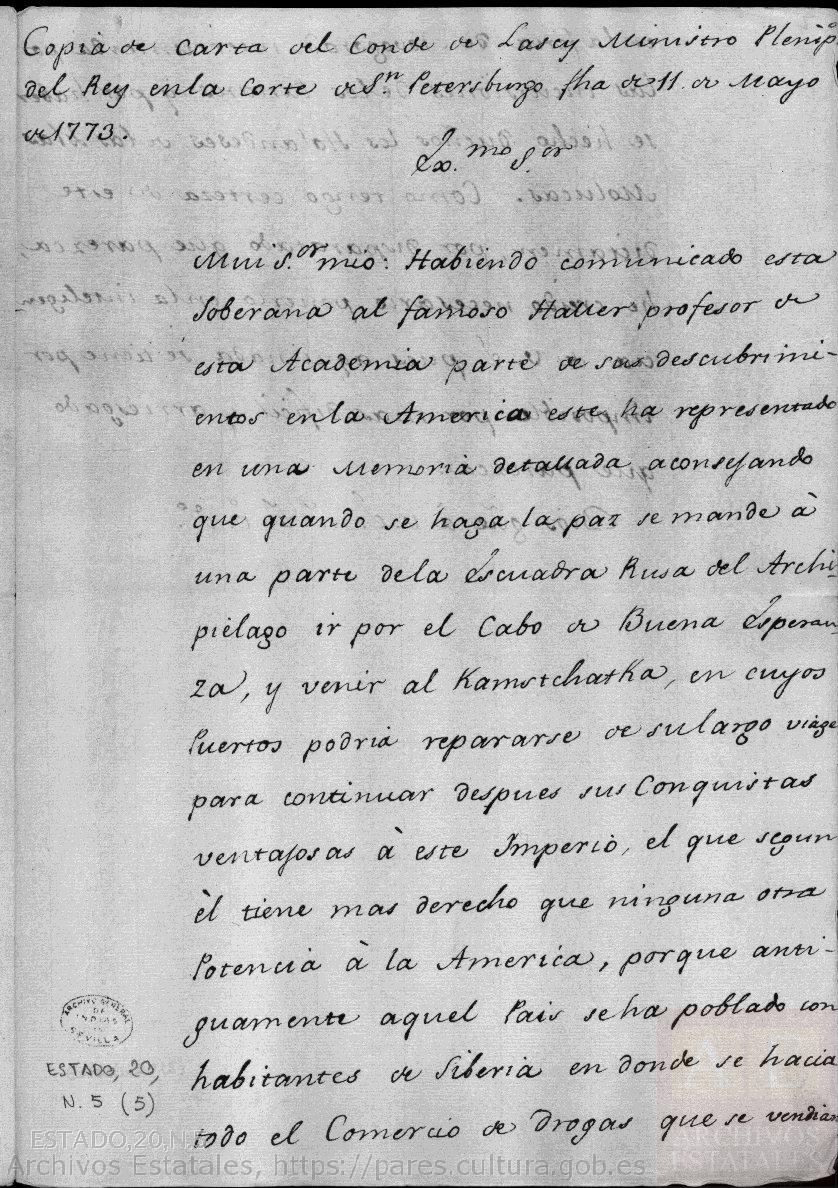 Copia de Carta del Conde de Lascy Ministro Plenip.o
del Rey en la Corte de S.n Petersburgo fha de 11. de Mayo
de 1773.
Ex.mo S.or
Mui S.or mio: Habiendo comunicado esta
Soberana al famoso Haller profesor de
esta Academia parte de sus descubrimi-
entos en la America este ha representado
en una Memoria detallada aconsejando
que quando se haga la paz se mande à
una parte de la Escuadra Rusa del Archi-
pièlago ir por el Cabo de Buena Esperan-
za, y venir al Kamstchatka, en cuyos
Puertos podria repararse de su largo viage
para continuar despues sus Conquistas
ventajosas à este Imperio, el que segun
èl tiene mas derecho que ninguna otra
Potencia à la America, porque anti-
guamente aquel Pais se ha poblado con
habitantes de Siberia en donde se hacia
todo el Comercio de Drogas que se vendian
ARCHIVO GENERAL
DE
INDIAS
SEVILLA
ESTADO, 20,
N. 5 (5)
ESTADO,20,N.5
Archivos Estatales, https://pares.cultura.gob.es
ARCHIVOS
ESTATALES